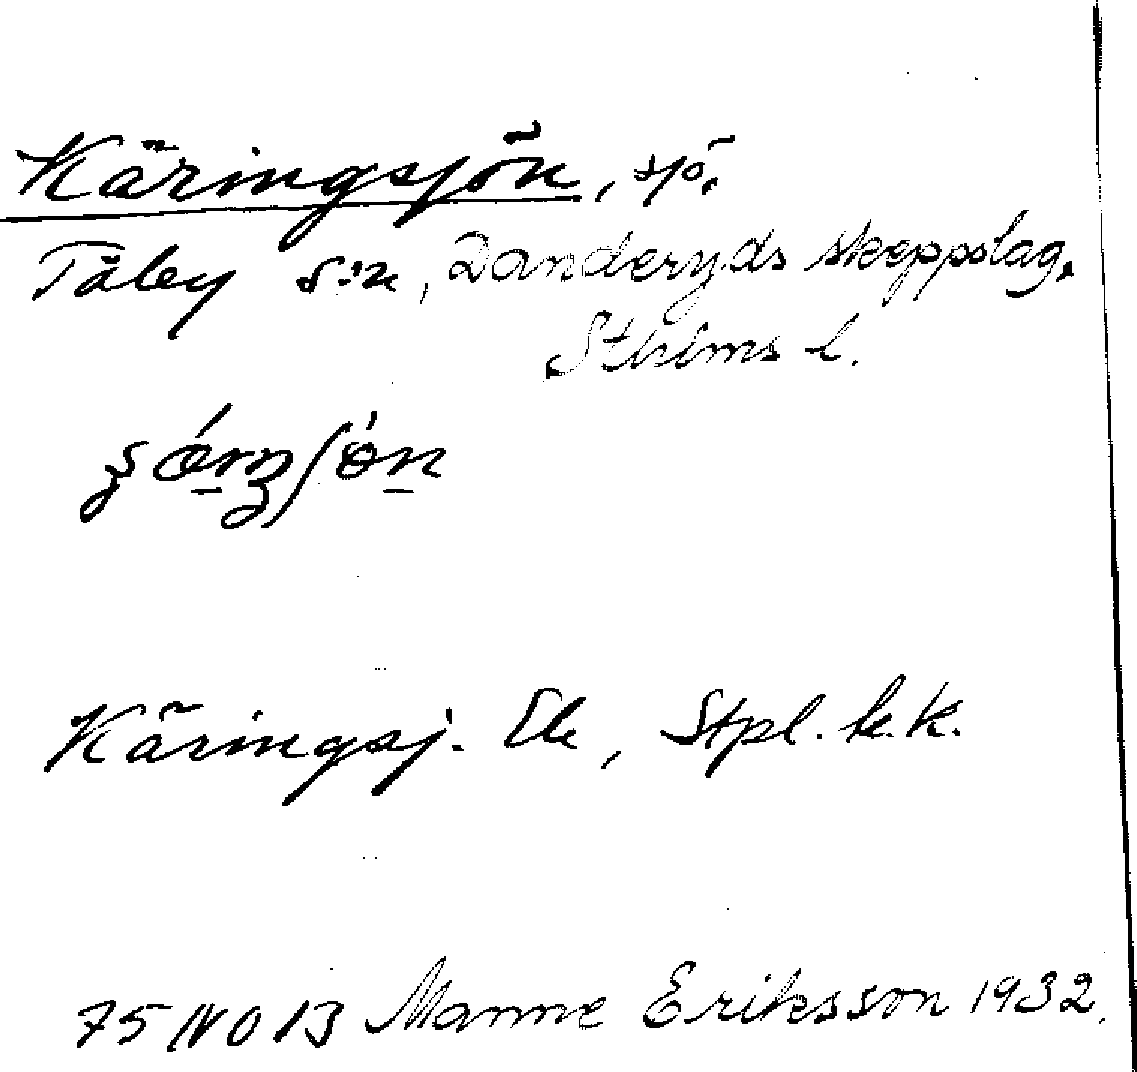 Käringsjön, sjö,
Täby s:n, Danderyds skeppslag,
Sthlms l.
Käringsj. Ek, Stpl. bl. k.
75 NO 13 Manne Eriksson 1932.